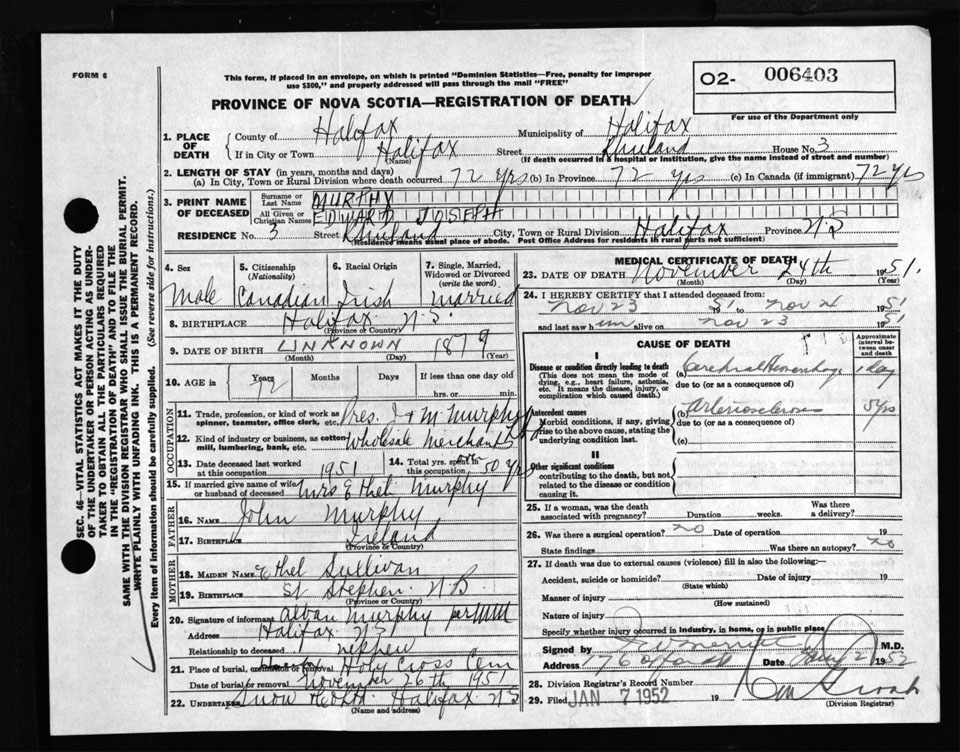 FORM 6
This form, if placed in an envelope, on which is printed "Dominion Statistics—Free, penalty for improper
use $300," and properly addressed will pass through the mail "FREE"
PROVINCE OF NOVA SCOTIA—REGISTRATION OF DEATH
O2- 006403
For use of the Department only
1. PLACE OF DEATH
County of Halifax Municipality of Halifax
If in City or Town Halifax Street House No. 3
(Name) (If death occurred in a hospital or institution, give the name instead of street and number)
2. LENGTH OF STAY (in years, months and days)
(a) In City, Town or Rural Division where death occurred 72 yrs (b) In Province 72 yrs (c) In Canada (if immigrant) 72 yrs
3. PRINT NAME OF DECEASED
Surname or Last Name MURPHY
All Given or Christian Names EDWARD JOSEPH
RESIDENCE No. 3 Street City, Town or Rural Division Halifax Province N S
(Residence means usual place of abode. Post Office Address for residents in rural parts not sufficient)
SEC. 46—VITAL STATISTICS ACT MAKES IT THE DUTY
OF THE UNDERTAKER OR PERSON ACTING AS UNDER-
TAKER TO OBTAIN ALL THE PARTICULARS REQUIRED
IN THE "REGISTRATION OF DEATH" AND TO FILE THE
SAME WITH THE DIVISION REGISTRAR WHO SHALL ISSUE THE BURIAL PERMIT.
WRITE PLAINLY WITH UNFADING INK. THIS IS A PERMANENT RECORD.
Every item of information should be carefully supplied. (See reverse side for instructions.)
4. Sex Male
5. Citizenship (Nationality) Canadian
6. Racial Origin Irish
7. Single, Married, Widowed or Divorced (write the word) married
8. BIRTHPLACE Halifax N.S.
(Province or Country)
9. DATE OF BIRTH UNKNOWN 1879
(Month) (Day) (Year)
10. AGE in Years 72 Months Days If less than one day old
hrs. or min.
OCCUPATION
11. Trade, profession, or kind of work as spinner, teamster, office clerk, etc. Pres. J & M Murphy Ltd
12. Kind of industry or business, as cotton mill, lumbering, bank, etc. Wholesale Merchants
13. Date deceased last worked at this occupation 1951
14. Total yrs. spent in this occupation 50 yrs
15. If married give name of wife or husband of deceased Mrs Ethel Murphy
FATHER
16. NAME John Murphy
17. BIRTHPLACE Ireland
(Province or Country)
MOTHER
18. MAIDEN NAME Ethel Sullivan
19. BIRTHPLACE St Stephen N B
(Province or Country)
20. Signature of informant Alban Murphy per MM
Address Halifax N S
Relationship to deceased nephew
21. Place of burial, cremation or removal Holy Cross Cem
Date of burial or removal November 26th 1951
22. UNDERTAKER Snow Halifax N S
(Name and address)
MEDICAL CERTIFICATE OF DEATH
23. DATE OF DEATH November 24th 1951.
(Month) (Day) (Year)
24. I HEREBY CERTIFY that I attended deceased from:
Nov 23 1951 to Nov 24 1951
and last saw him alive on Nov 23 1951
CAUSE OF DEATH
Approximate interval between onset and death
I
Disease or condition directly leading to death
(This does not mean the mode of dying, e.g., heart failure, asthenia, etc. It means the disease, injury, or complication which caused death.)
(a) Cerebral Hemorrhage 1 day
due to (or as a consequence of)
Antecedent causes
Morbid conditions, if any, giving rise to the above cause, stating the underlying condition last.
(b) Arteriosclerosis 5 yrs
due to (or as a consequence of)
(c)
II
Other significant conditions
contributing to the death, but not related to the disease or condition causing it.
25. If a woman, was the death associated with pregnancy? Duration weeks. Was there a delivery?
26. Was there a surgical operation? no Date of operation 19
State findings Was there an autopsy? no
27. If death was due to external causes (violence) fill in also the following:—
Accident, suicide or homicide? Date of injury 19
(State which)
Manner of injury
(How sustained)
Nature of injury
Specify whether injury occurred in industry, in home, or in public place
Signed by M.D.
Address Date 1952
28. Division Registrar's Record Number
29. Filed JAN 7 1952 19
(Division Registrar)